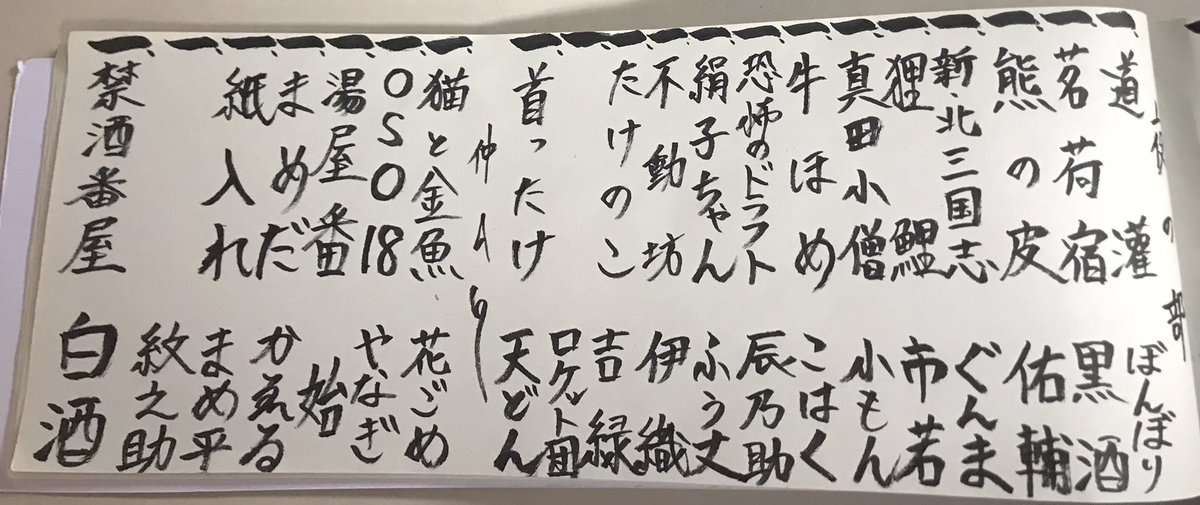 夜の部
一、道灌 ぼんぼり
一、茗荷宿 黒酒
一、熊の皮 佑輔
一、新・北三国志 ぐんま
一、狸鯉 市若
一、真田小僧 小もん
一、牛ほめ こはく
一、恐怖のドラフト 辰乃助
一、絹子ちゃん ふう丈
一、不動坊 伊織
一、たけのこ 吉緑
一、 ロケット団
一、首ったけ 天どん
仲入り
一、猫と金魚 花ごめ
一、OSO18 やなぎ
一、湯屋番 始
一、まめだ かゑる
一、紙入れ まめ平
一、 紋之助
一、禁酒番屋 白酒